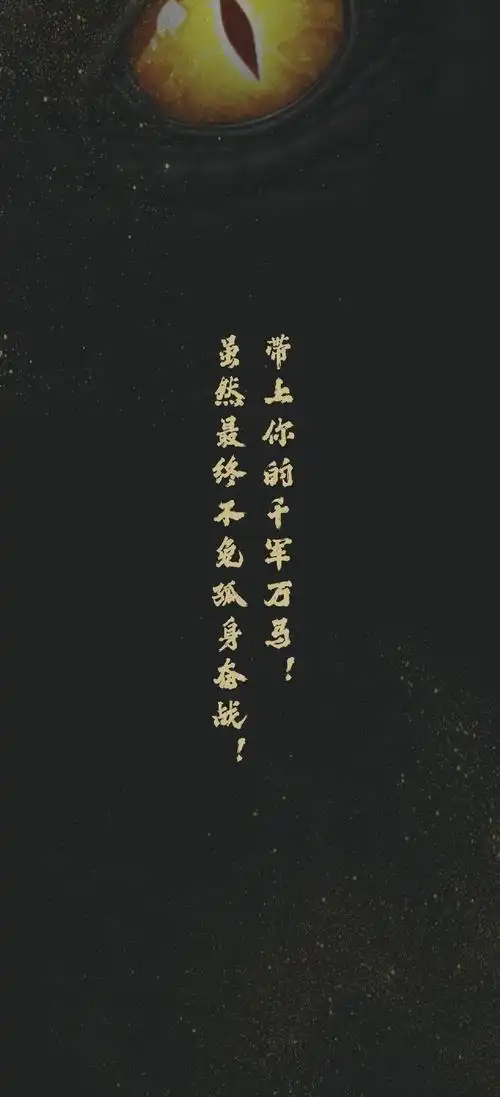 带上你的千军万马！
虽然最终不免孤身奋战！